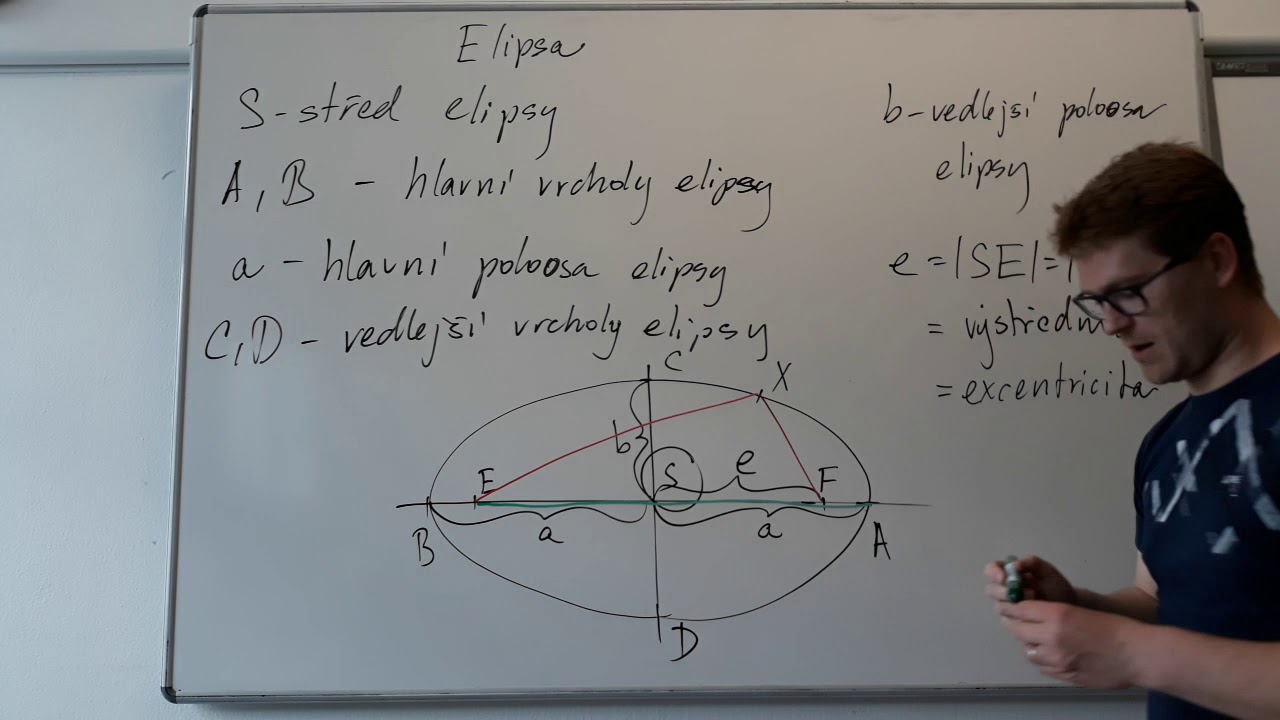 Elipsa
S - střed elipsy
A, B - hlavní vrcholy elipsy
a - hlavní poloosa elipsy
C, D - vedlejší vrcholy elipsy
b - vedlejší poloosa
elipsy
e = |SE| =
= výstředn
= excentricita
C
X
b
E
S
e
F
B
a
a
A
D